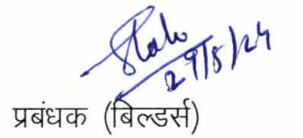 29/5/24
प्रबंधक (बिल्डर्स)